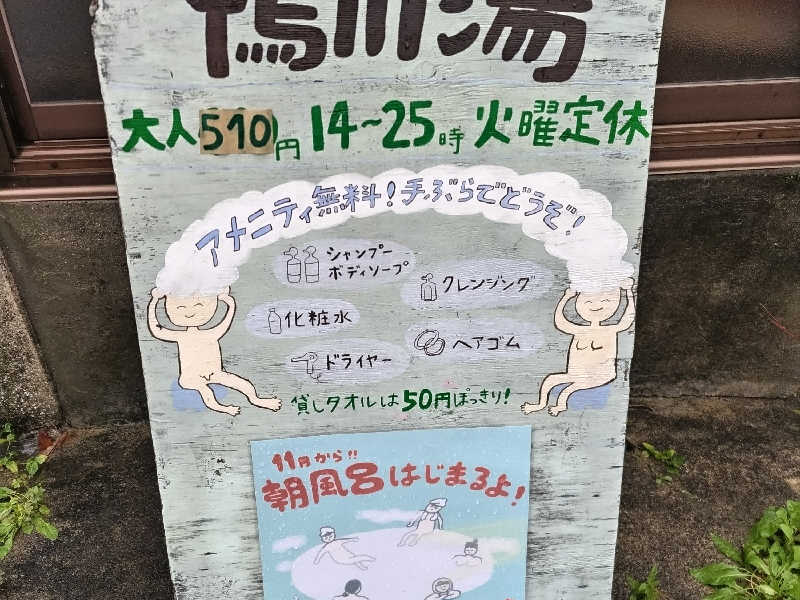 鴨川湯
大人510円 14~25時 火曜定休
アメニティ無料!手ぶらでどうぞ!
シャンプー
ボディソープ
クレンジング
化粧水
ヘアゴム
ドライヤー
貸しタオルは50円ぽっきり!
11月から!!
朝風呂はじまるよ!